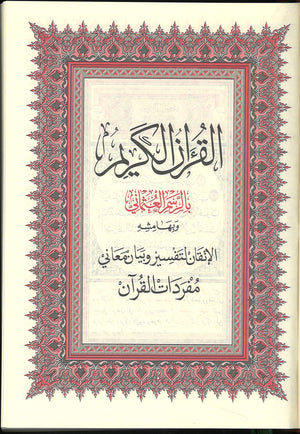 القرءان الكريم
بالرسم العثماني
وبهامشه
الإتقان لتفسير وبيان معاني
مفردات القرآن